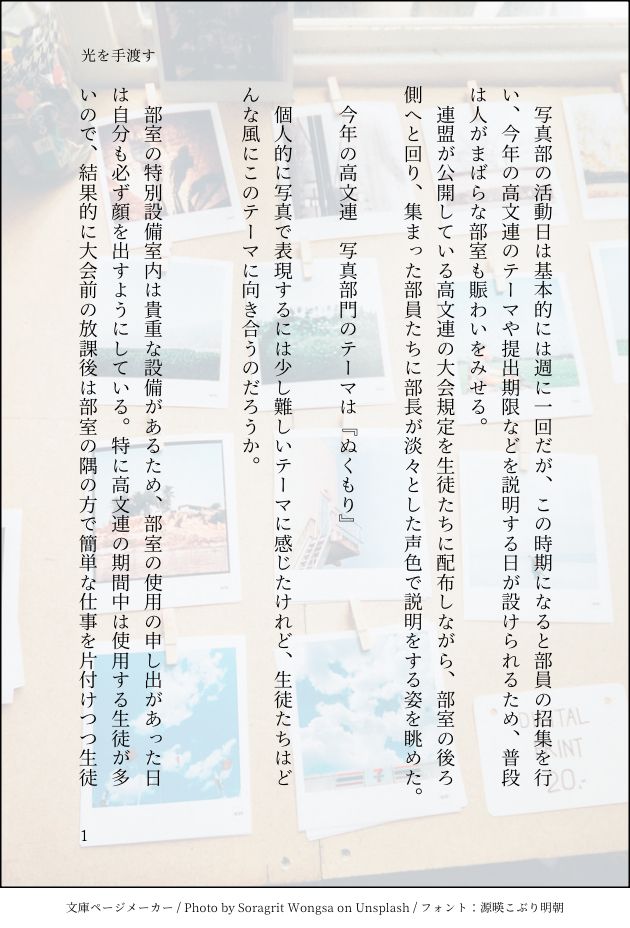 光を手渡す
　写真部の活動日は基本的には週に一回だが、この時期になると部員の招集を行
い、今年の高文連のテーマや提出期限などを説明する日が設けられるため、普段
は人がまばらな部室も賑わいをみせる。
　連盟が公開している高文連の大会規定を生徒たちに配布しながら、部室の後ろ
側へと回り、集まった部員たちに部長が淡々とした声色で説明をする姿を眺めた。
　今年の高文連　写真部門のテーマは『ぬくもり』
　個人的に写真で表現するには少し難しいテーマに感じたけれど、生徒たちはど
んな風にこのテーマに向き合うのだろうか。
　部室の特別設備室内は貴重な設備があるため、部室の使用の申し出があった日
は自分も必ず顔を出すようにしている。特に高文連の期間中は使用する生徒が多
いので、結果的に大会前の放課後は部室の隅の方で簡単な仕事を片付けつつ生徒
1
DIGITAL
PRINT
20.-
文庫ページメーカー / Photo by Soragrit Wongsa on Unsplash / フォント：源暎こぶり明朝